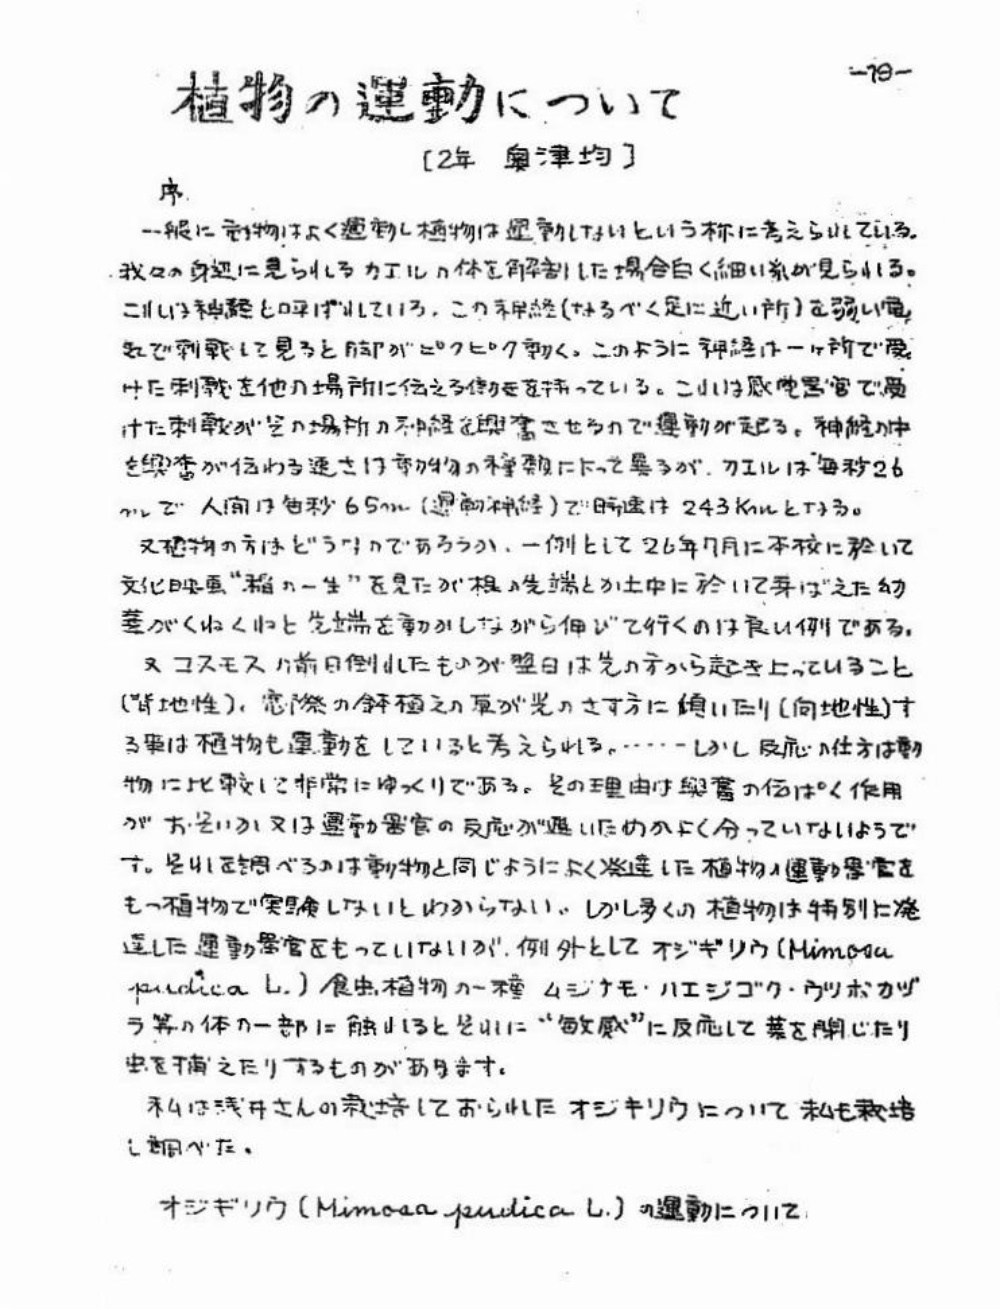 -79-
植物の運動について
[2年 奥津均]
序
一般に動物はよく運動し植物は運動しないという様に考えられている。
我々の身辺に見られるカエルの体を解剖した場合白く細い糸が見られる。
これは神経と呼ばれている。この神経(なるべく足に近い所)を弱い電
気で刺戟して見ると脚がピクピク動く。このように神経は一ヶ所で受
けた刺戟を他の場所に伝える働きを持っている。これは感覚器官で受
けた刺戟がその場所の神経を興奮させるので運動が起る。神経の中
を興奮が伝わる速さは動物の種類によって異るが、カエルは毎秒26
mで 人間は毎秒65m(運動神経)で時速は243Kmとなる。
又植物の方はどうなのであろうか、一例として26年7月に本校に於いて
文化映画“稲の一生”を見たが根の先端とか土中に於いて芽ばえた幼
葉がくねくねと先端を動かしながら伸びて行くのは良い例である。
又コスモスの前日倒れたものが翌日は先の方から起き上っていること
(背地性)、窓際の鉢植えの草が光のさす方に傾いたり(向地性)す
る事は植物も運動をしていると考えられる。‥‥‥しかし反応の仕方は動
物に比較して非常にゆっくりである。その理由は興奮の伝ぱく作用
がおそいか又は運動器官の反応が遅いためかよく分っていないようで
す。それを調べるのは動物と同じようによく発達した植物の運動器官を
もつ植物で実験しないとわからない。しかし多くの植物は特別に発
達した運動器官をもっていないが、例外としてオジギソウ(Mimosa
pudica L.)食虫植物の一種 ムジナモ・ハエジゴク・ウツボカヅ
ラ等の体の一部に触れるとそれに“敏感”に反応して葉を閉じたり
虫を捕えたりするものがあります。
私は浅井さんの栽培しておられたオジギソウについて私も栽培
し調べた。
オジギソウ(Mimosa pudica L.)の運動について